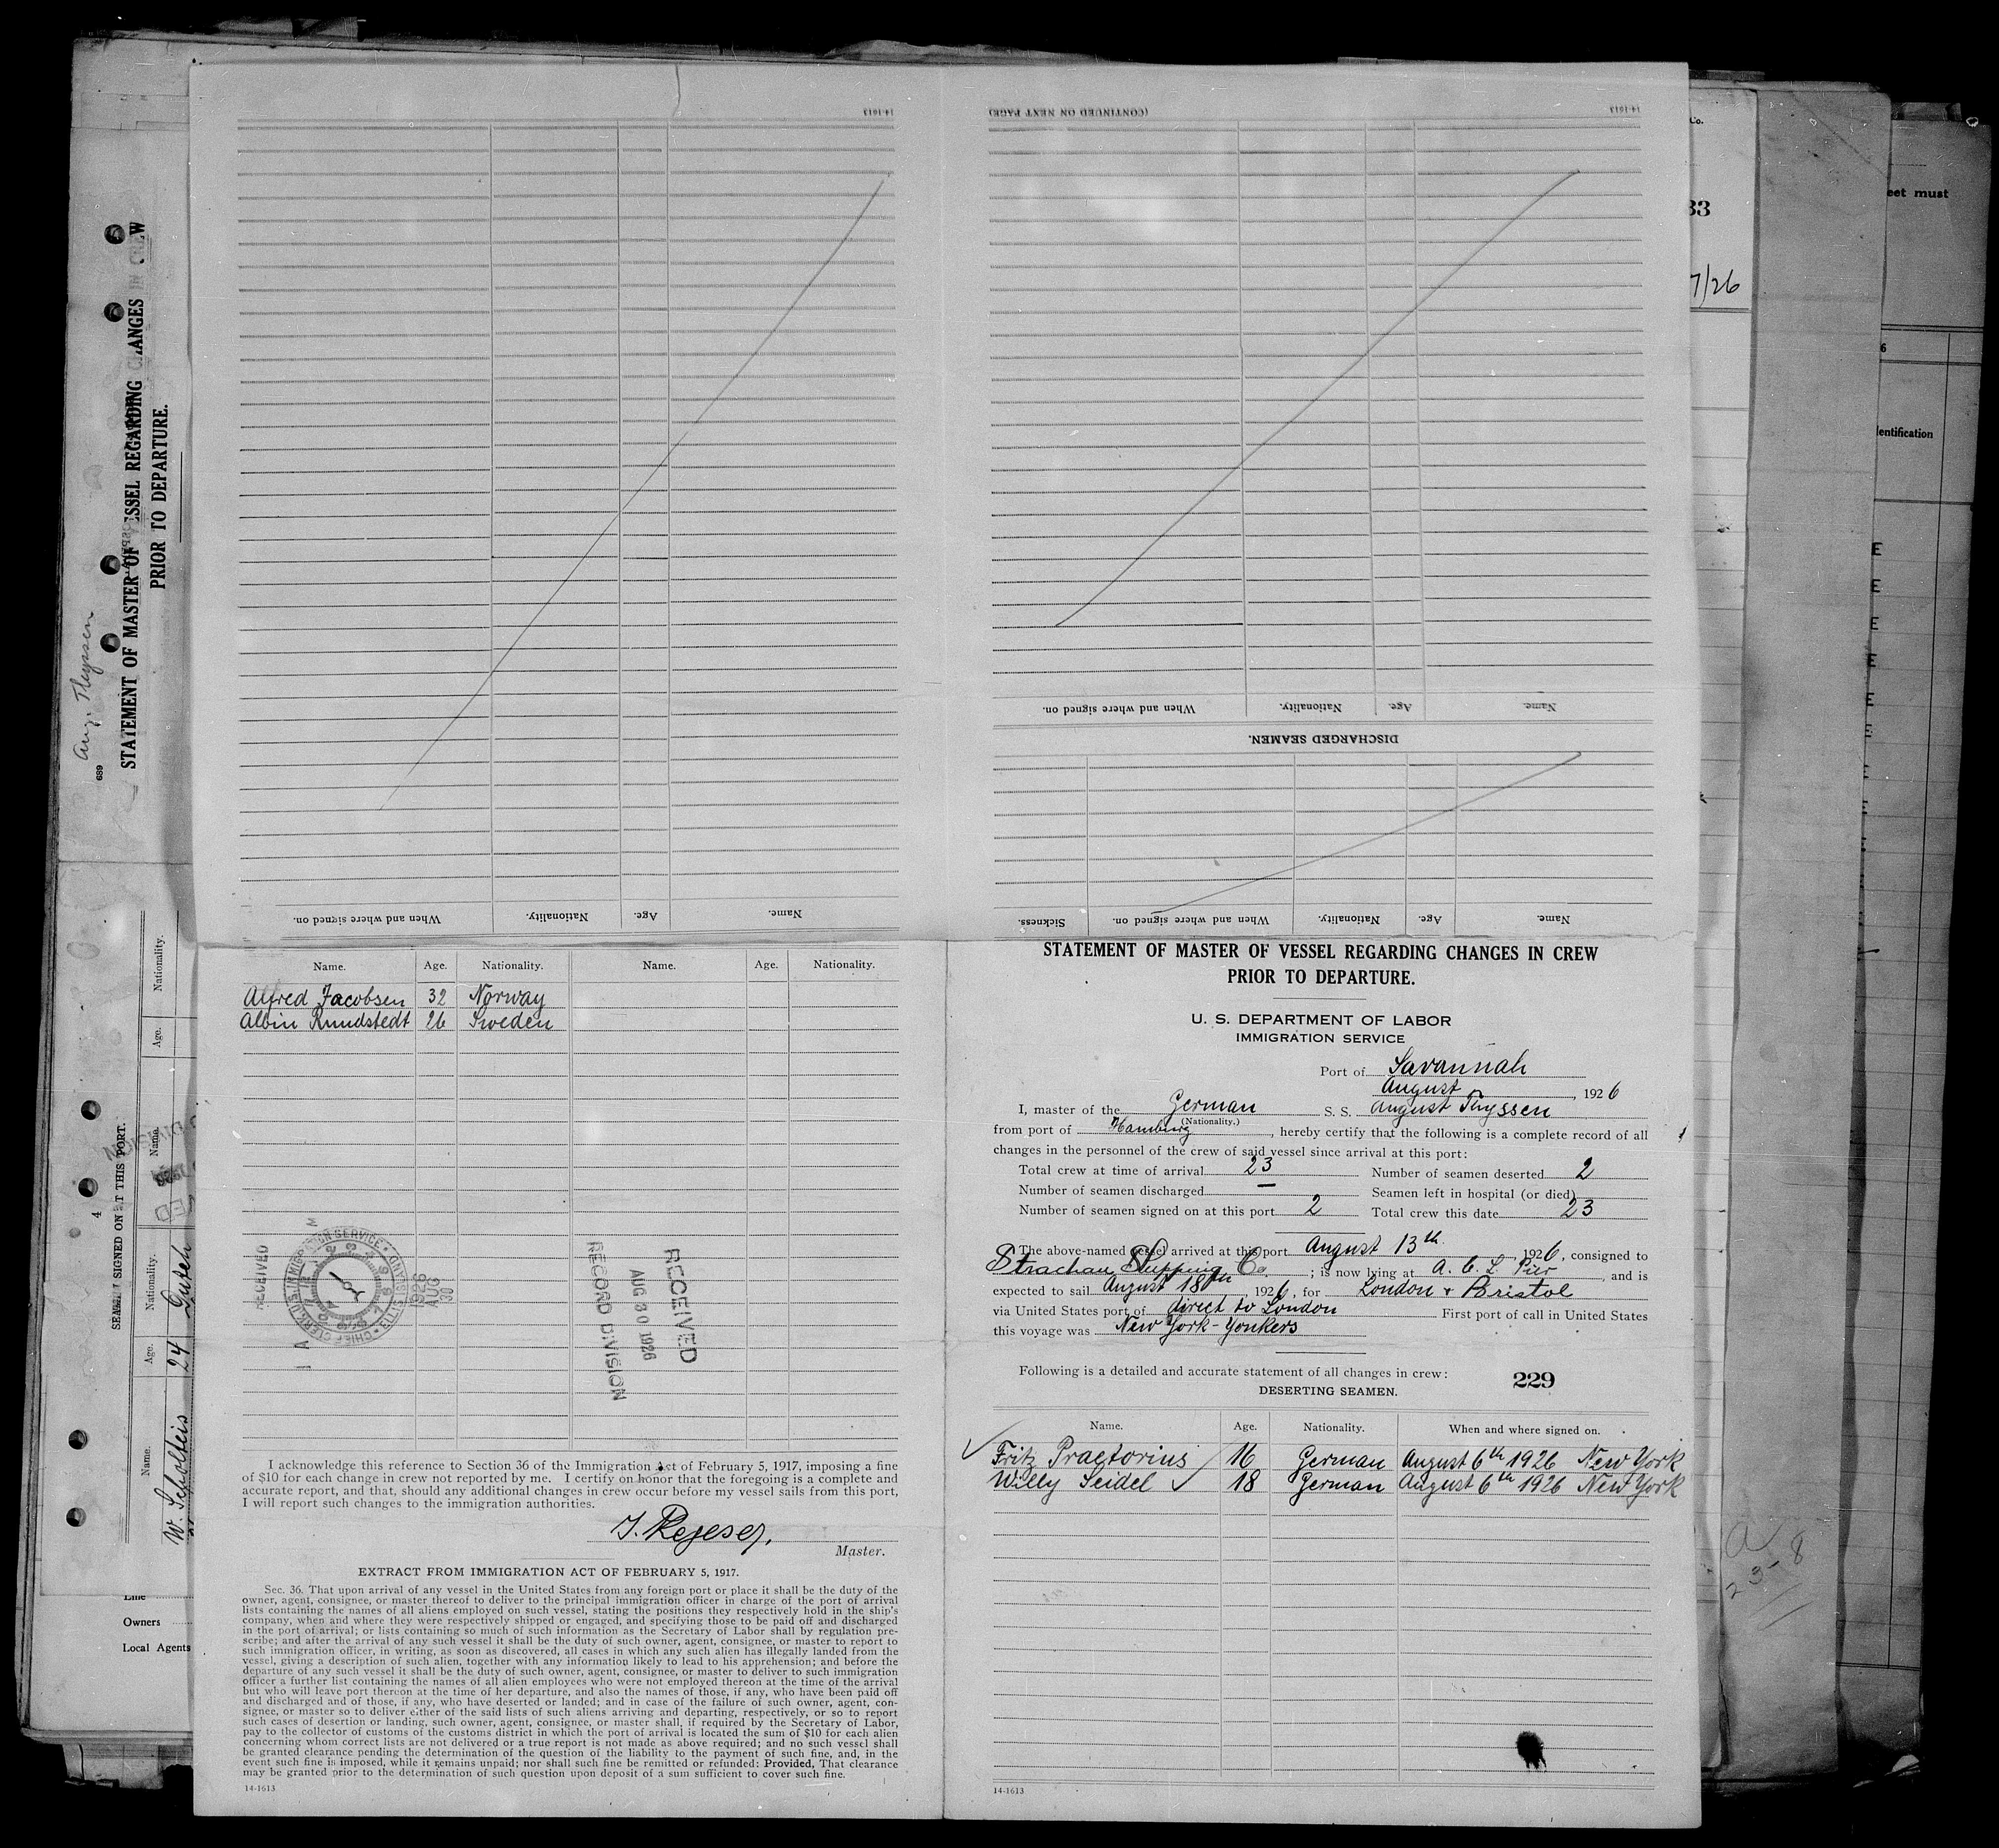 14-1613
(CONTINUED ON NEXT PAGE)
14-1613
Name.
Age.
Nationality.
When and where signed on.
DISCHARGED SEAMEN.
Name.
Age.
Nationality.
When and where signed on.
Name.
Age.
Nationality.
When and where signed on.
Sickness.
Co.
33
7/26
eet must
6
dentification
E
E
E
E
E
E
E
E
E
Aug. Thyssen
689
STATEMENT OF MASTER OF VESSEL REGARDING CHANGES IN CREW
PRIOR TO DEPARTURE.
4
SEAMEN SIGNED ON AT THIS PORT.
Name. Age. Nationality. Name. Age. Nationality.
W. Scholteis 24 Dutch
Line
Owners
Local Agents
Name. Age. Nationality. Name. Age. Nationality.
Alfred Jacobsen 32 Norway
Albin Rundstedt 26 Sweden
RECEIVED
U.S. IMMIGRATION SERVICE • ELLIS ISLAND • CHIEF CLERK
1926
AUG
30
RECEIVED
AUG 30 1926
RECORD DIVISION
I acknowledge this reference to Section 36 of the Immigration Act of February 5, 1917, imposing a fine
of $10 for each change in crew not reported by me. I certify on honor that the foregoing is a complete and
accurate report, and that, should any additional changes in crew occur before my vessel sails from this port,
I will report such changes to the immigration authorities.
Master.
EXTRACT FROM IMMIGRATION ACT OF FEBRUARY 5, 1917.
Sec. 36. That upon arrival of any vessel in the United States from any foreign port or place it shall be the duty of the
owner, agent, consignee, or master thereof to deliver to the principal immigration officer in charge of the port of arrival
lists containing the names of all aliens employed on such vessel, stating the positions they respectively hold in the ship's
company, when and where they were respectively shipped or engaged, and specifying those to be paid off and discharged
in the port of arrival; or lists containing so much of such information as the Secretary of Labor shall by regulation pre-
scribe; and after the arrival of any such vessel it shall be the duty of such owner, agent, consignee, or master to report to
such immigration officer, in writing, as soon as discovered, all cases in which any such alien has illegally landed from the
vessel, giving a description of such alien, together with any information likely to lead to his apprehension; and before the
departure of any such vessel it shall be the duty of such owner, agent, consignee, or master to deliver to such immigration
officer a further list containing the names of all alien employees who were not employed thereon at the time of the arrival
but who will leave port thereon at the time of her departure, and also the names of those, if any, who have been paid off
and discharged and of those, if any, who have deserted or landed; and in case of the failure of such owner, agent, con-
signee, or master so to deliver either of the said lists of such aliens arriving and departing, respectively, or so to report
such cases of desertion or landing, such owner, agent, consignee, or master shall, if required by the Secretary of Labor,
pay to the collector of customs of the customs district in which the port of arrival is located the sum of $10 for each alien
concerning whom correct lists are not delivered or a true report is not made as above required; and no such vessel shall
be granted clearance pending the determination of the question of the liability to the payment of such fine, and, in the
event such fine is imposed, while it remains unpaid; nor shall such fine be remitted or refunded: Provided, That clearance
may be granted prior to the determination of such question upon deposit of a sum sufficient to cover such fine.
14-1613
STATEMENT OF MASTER OF VESSEL REGARDING CHANGES IN CREW
PRIOR TO DEPARTURE.
U. S. DEPARTMENT OF LABOR
IMMIGRATION SERVICE
Port of Savannah
August, 1926
I, master of the German S. S. August Thyssen
(Nationality.)
from port of Hamburg, hereby certify that the following is a complete record of all
changes in the personnel of the crew of said vessel since arrival at this port:
Total crew at time of arrival 23 Number of seamen deserted 2
Number of seamen discharged — Seamen left in hospital (or died)
Number of seamen signed on at this port 2 Total crew this date 23
The above-named vessel arrived at this port August 13th, 1926, consigned to
Strachan Shipping Co.; is now lying at A. C. L. Pier, and is
expected to sail August 18th, 1926, for London + Bristol
via United States port of direct to London First port of call in United States
this voyage was New York - Yonkers
Following is a detailed and accurate statement of all changes in crew: 229
DESERTING SEAMEN.
Name. Age. Nationality. When and where signed on.
Fritz Praetorius 16 German August 6th 1926 New York
Willy Seidel 18 German August 6th 1926 New York
14-1613